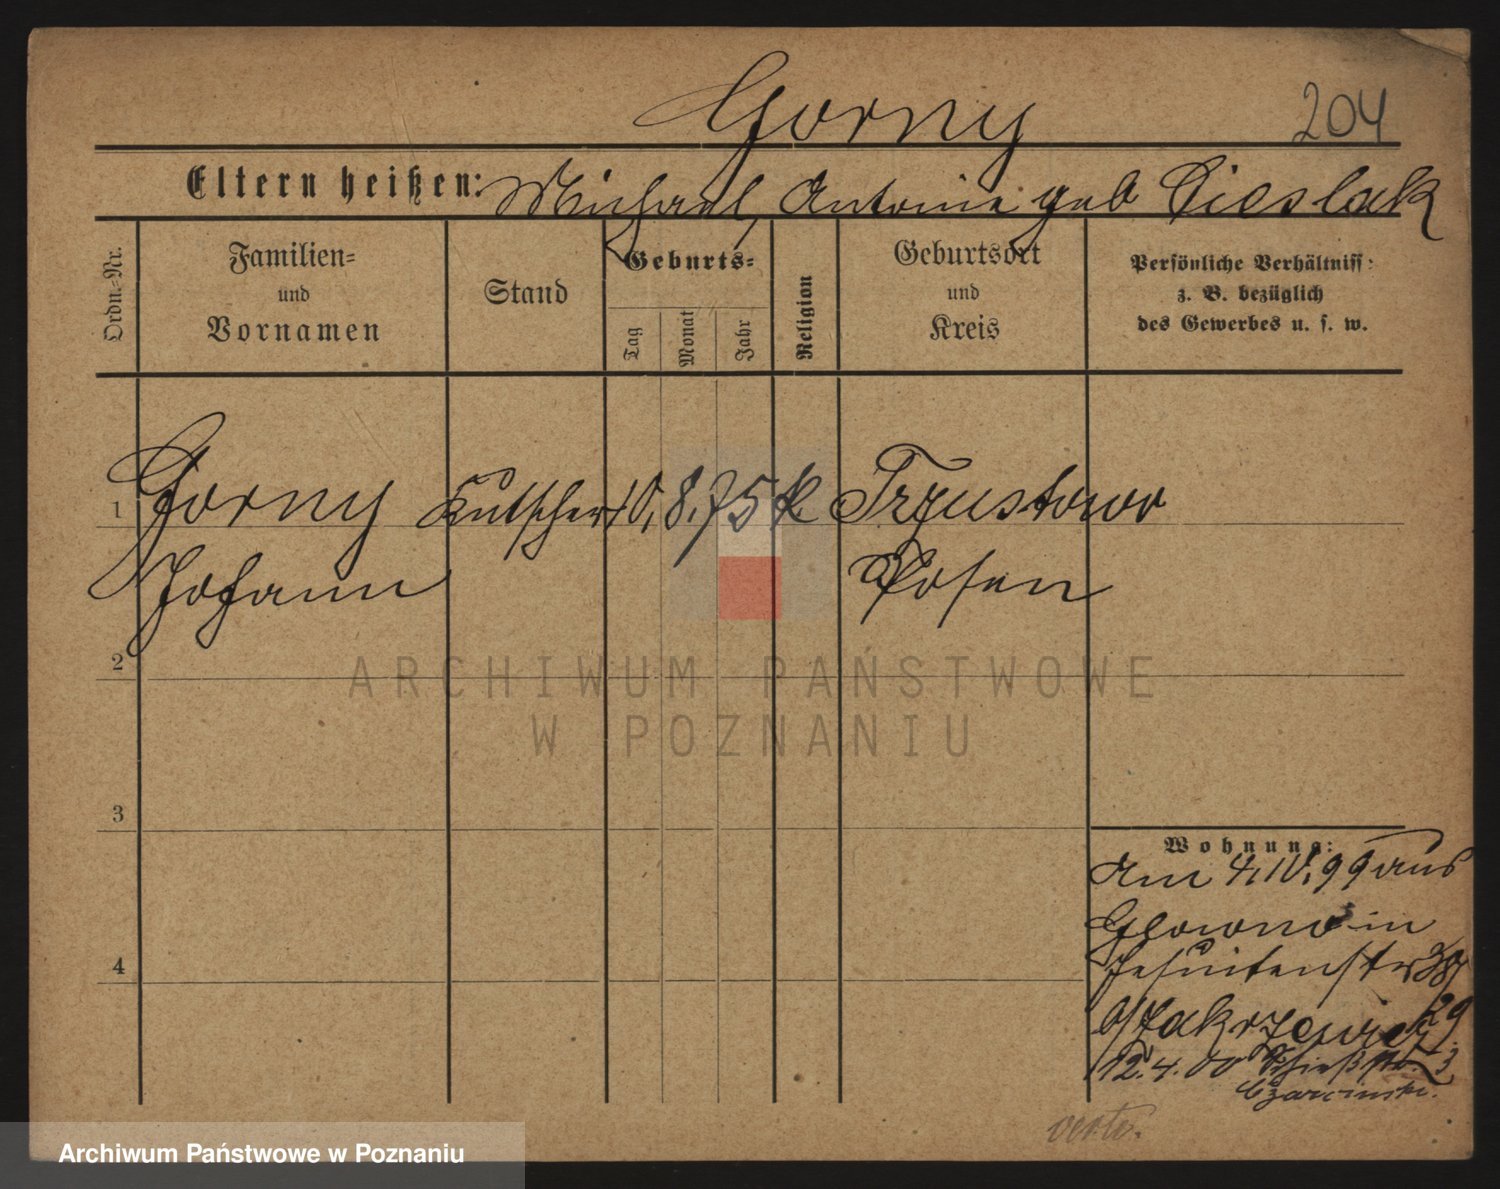 Gorny 204
Eltern heißen: Michael, Antonie geb Cieslak
Ordn.-Nr.
Familien-
und
Vornamen
Stand
Geburts-
Tag
Monat
Jahr
Religion
Geburtsort
und
Kreis
Persönliche Verhältniss:
z. B. bezüglich
des Gewerbes u. s. w.
1 Gorny Kutscher 10. 8. 75 k. Trzustowo
Johann Posen
2
ARCHIWUM PAŃSTWOWE
W POZNANIU
3
Wohnung:
Am 4. 10. 99 aus
Glowno in
Jesuitenstr
4
29
12. 4. 00 Schießstr. 3
Czarcinski.
verte.
Archiwum Państwowe w Poznaniu